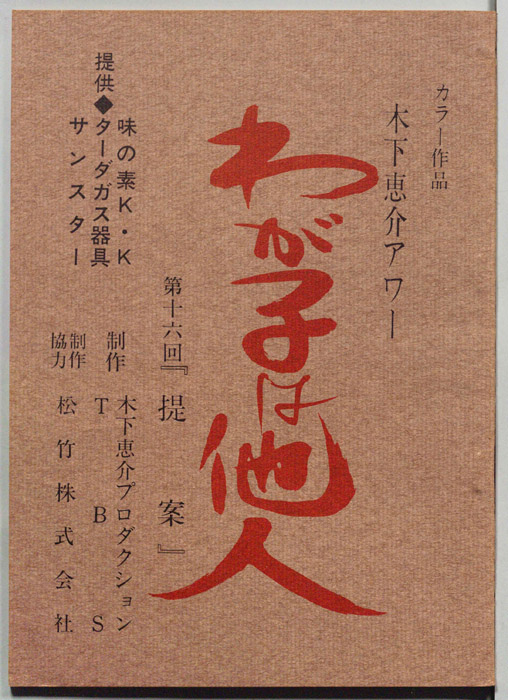 カラー作品
木下恵介アワー
わが子は他人
第十六回『提案』
提供◆
味の素K・K
ターダガス器具
サンスター
制作
木下恵介プロダクション
TBS
制作協力
松竹株式会社